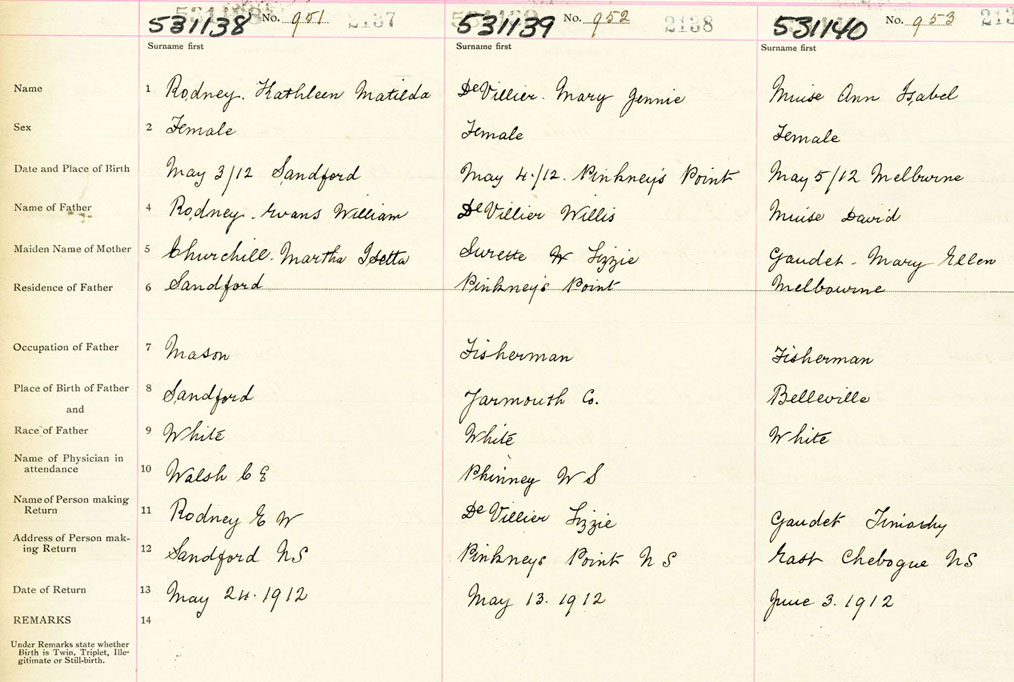 531138 No. 951 2137 531139 No. 952 2138 531140 No. 953 213
Surname first Surname first Surname first
Name 1 Rodney. Kathleen Matilda DeVillier. Mary Jennie Muise Ann Isabel
Sex 2 Female Female Female
Date and Place of Birth 3 May 3/12 Sandford May 4/12. Pinkney's Point May 5/12 Melburne
Name of Father 4 Rodney. Evans William DeVillier Willis Muise David
Maiden Name of Mother 5 Churchill. Martha Isetta Surette Lizzie Gaudet - Mary Ellen
Residence of Father 6 Sandford Pinkney's Point Melbourne
Occupation of Father 7 Mason Fisherman Fisherman
Place of Birth of Father 8 Sandford Yarmouth Co. Belleville
and
Race of Father 9 White White White
Name of Physician in
attendance 10 Walsh C E Phinney W S
Name of Person making
Return 11 Rodney E W DeVillier Lizzie Gaudet Timothy
Address of Person mak-
ing Return 12 Sandford NS Pinkneys Point N S East Chebogue NS
Date of Return 13 May 24. 1912 May 13. 1912 June 3. 1912
REMARKS 14
Under Remarks state whether
Birth is Twin, Triplet, Ille-
gitimate or Still-birth.